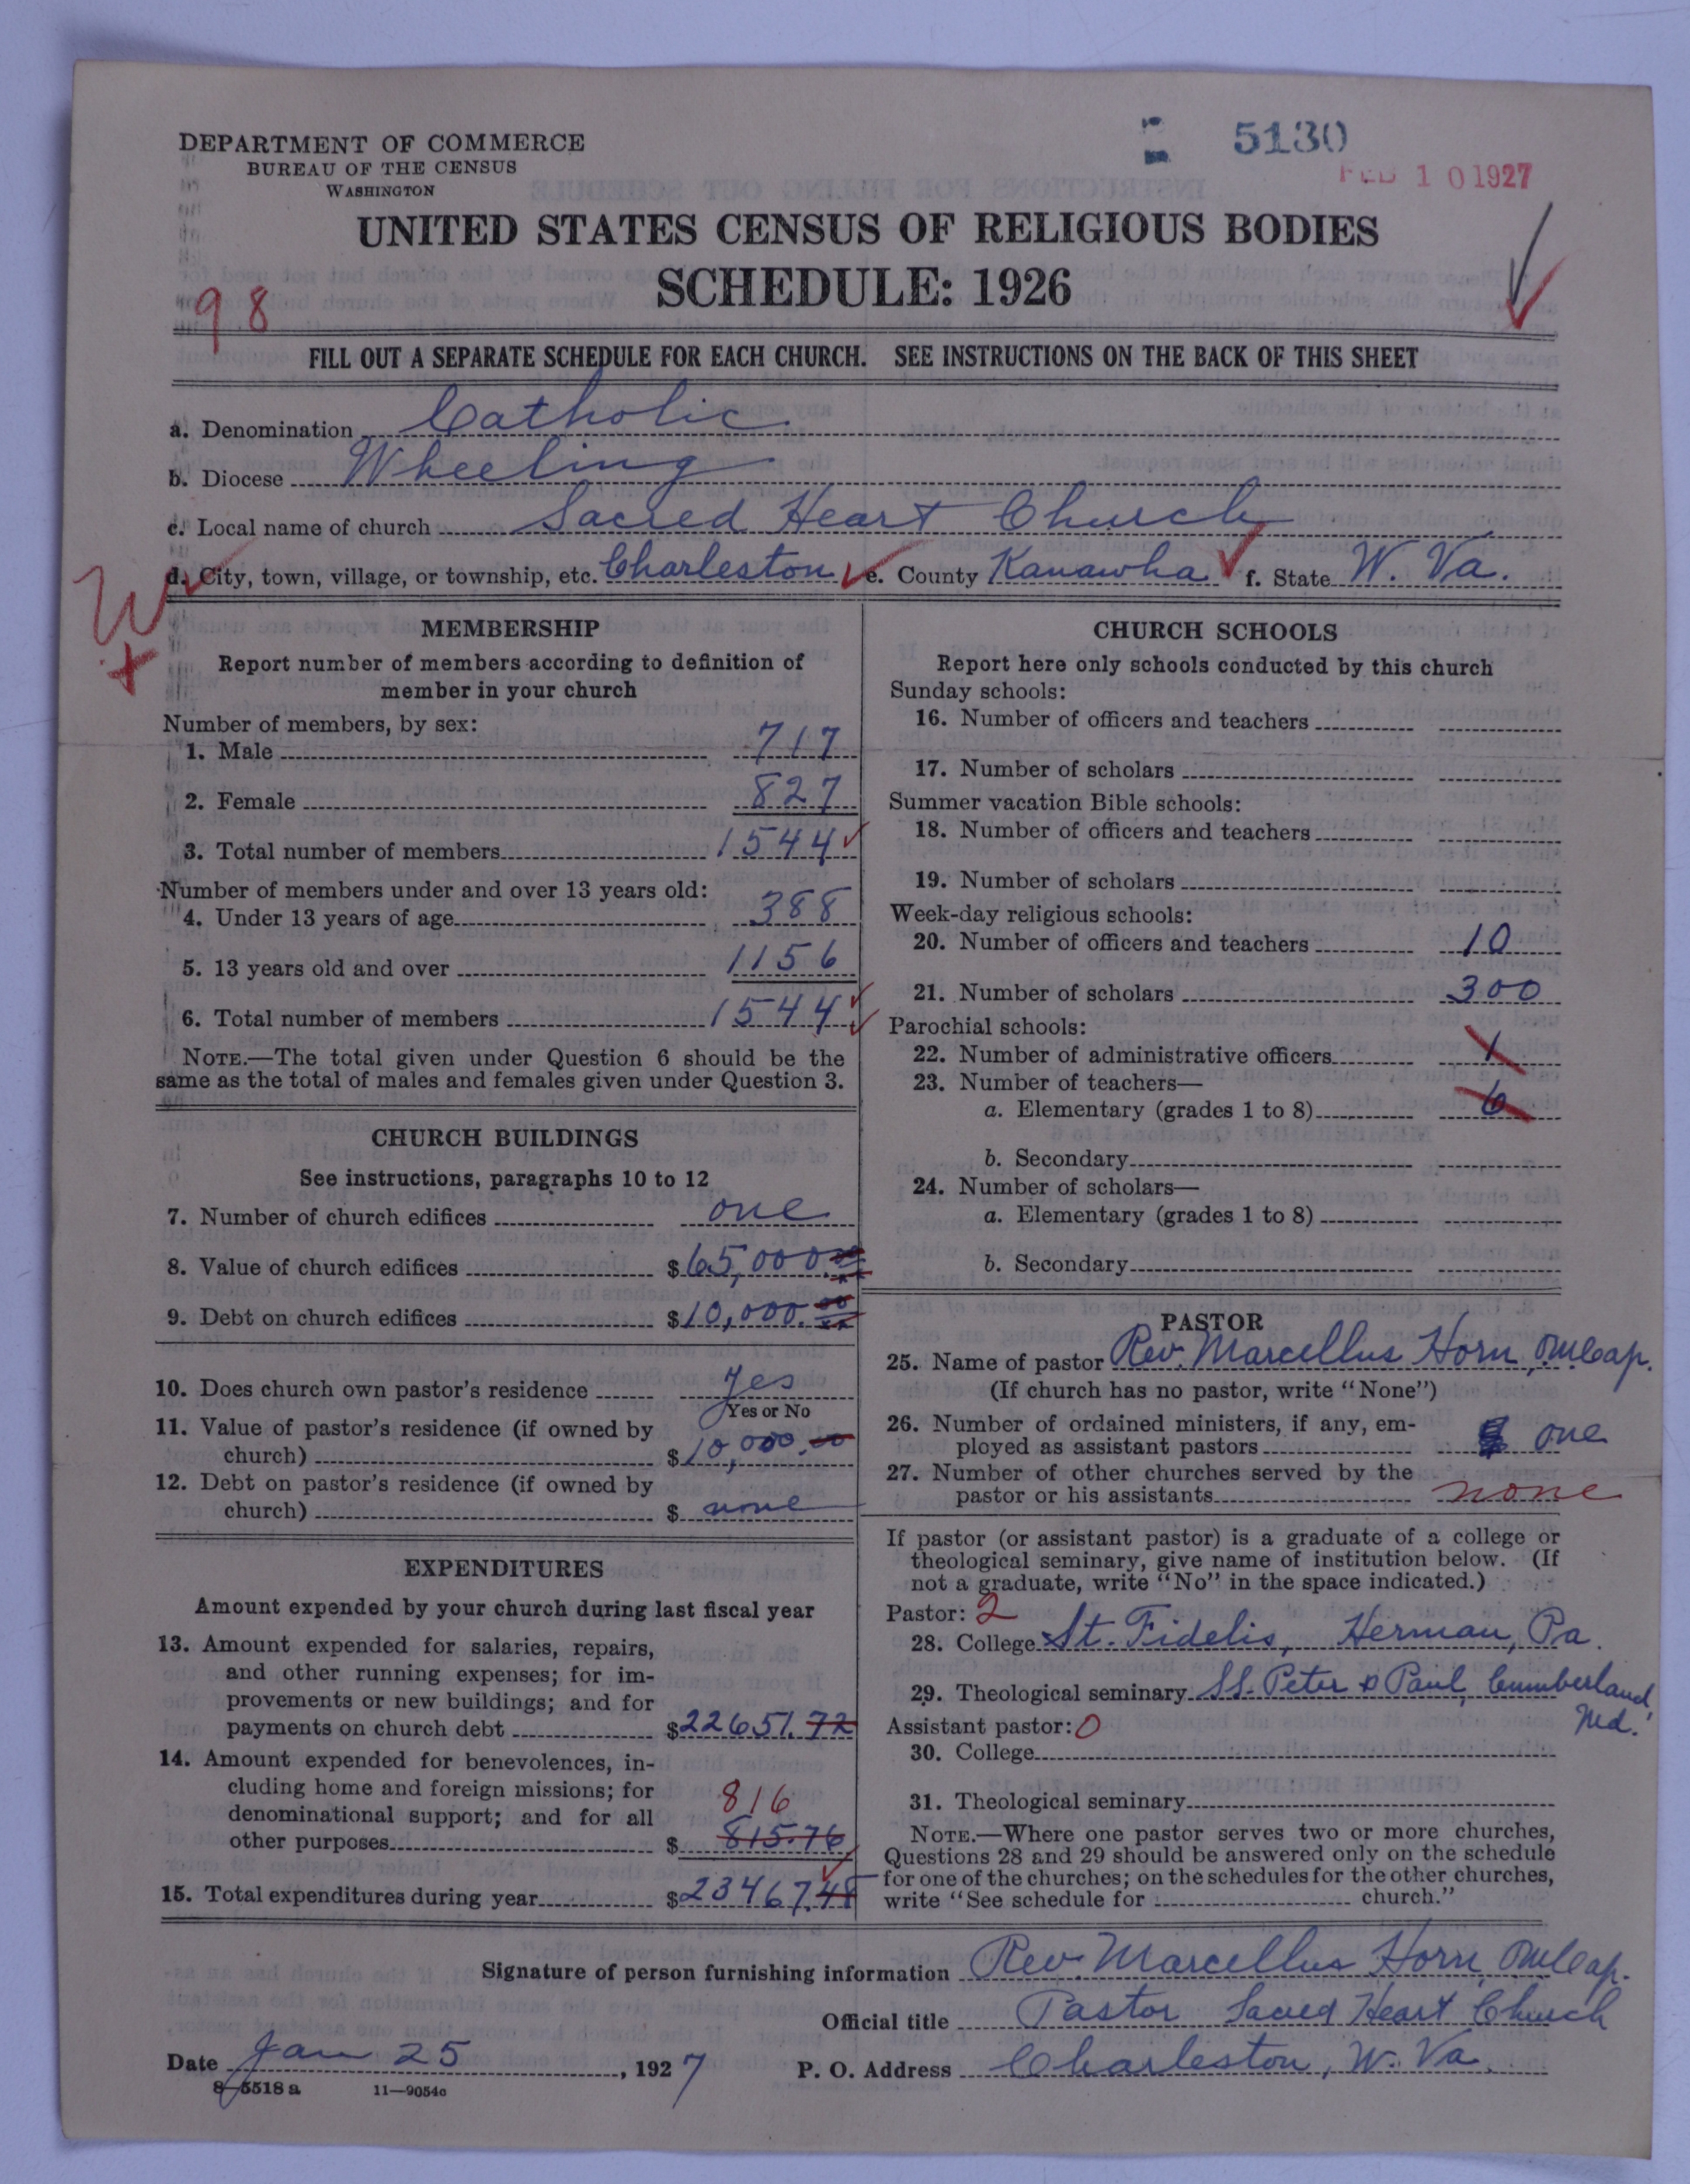 DEPARTMENT OF COMMERCE
BUREAU OF THE CENSUS
WASHINGTON
5130
FEB 10 1927
UNITED STATES CENSUS OF RELIGIOUS BODIES
SCHEDULE: 1926
98
FILL OUT A SEPARATE SCHEDULE FOR EACH CHURCH. SEE INSTRUCTIONS ON THE BACK OF THIS SHEET
a. Denomination Catholic
b. Diocese Wheeling
c. Local name of church Sacred Heart Church
d. City, town, village, or township, etc. Charleston e. County Kanawha f. State W. Va.
W
+
MEMBERSHIP
Report number of members according to definition of
member in your church
Number of members, by sex:
1. Male 717
2. Female 827
3. Total number of members 1544
Number of members under and over 13 years old:
4. Under 13 years of age 388
5. 13 years old and over 1156
6. Total number of members 1544
NOTE.—The total given under Question 6 should be the
same as the total of males and females given under Question 3.
CHURCH BUILDINGS
See instructions, paragraphs 10 to 12
7. Number of church edifices one
8. Value of church edifices $65,000.00
9. Debt on church edifices $10,000.00
10. Does church own pastor's residence Yes
Yes or No
11. Value of pastor's residence (if owned by
church) $10,000.00
12. Debt on pastor's residence (if owned by
church) $ none
EXPENDITURES
Amount expended by your church during last fiscal year
13. Amount expended for salaries, repairs,
and other running expenses; for im-
provements or new buildings; and for
payments on church debt $22651.72
14. Amount expended for benevolences, in-
cluding home and foreign missions; for
denominational support; and for all 816
other purposes $ 815.76
15. Total expenditures during year $23467.48
CHURCH SCHOOLS
Report here only schools conducted by this church
Sunday schools:
16. Number of officers and teachers
17. Number of scholars
Summer vacation Bible schools:
18. Number of officers and teachers
19. Number of scholars
Week-day religious schools:
20. Number of officers and teachers 10
21. Number of scholars 300
Parochial schools:
22. Number of administrative officers 1
23. Number of teachers—
a. Elementary (grades 1 to 8) 6
b. Secondary
24. Number of scholars—
a. Elementary (grades 1 to 8)
b. Secondary
PASTOR
25. Name of pastor Rev. Marcellus Horn, OMCap.
(If church has no pastor, write "None")
26. Number of ordained ministers, if any, em-
ployed as assistant pastors one
27. Number of other churches served by the
pastor or his assistants none
If pastor (or assistant pastor) is a graduate of a college or
theological seminary, give name of institution below. (If
not a graduate, write "No" in the space indicated.)
Pastor: 2
28. College St. Fidelis, Herman, Pa.
29. Theological seminary SS. Peter & Paul, Cumberland,
Md.
Assistant pastor: 0
30. College
31. Theological seminary
NOTE.—Where one pastor serves two or more churches,
Questions 28 and 29 should be answered only on the schedule
for one of the churches; on the schedules for the other churches,
write "See schedule for church."
Signature of person furnishing information Rev. Marcellus Horn, OMCap.
Official title Pastor Sacred Heart Church
Date Jan 25, 1927 P. O. Address Charleston, W. Va.
8-5518a 11—9054c